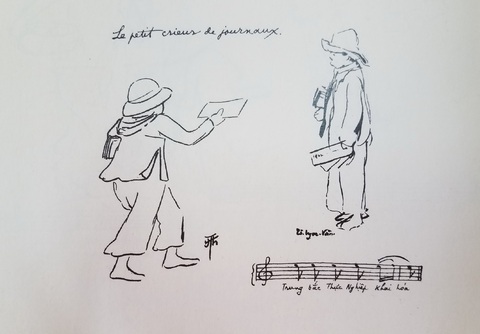 Le petit crieur de journaux.
Trung Bắc Thực Nghiệp Khai hóa